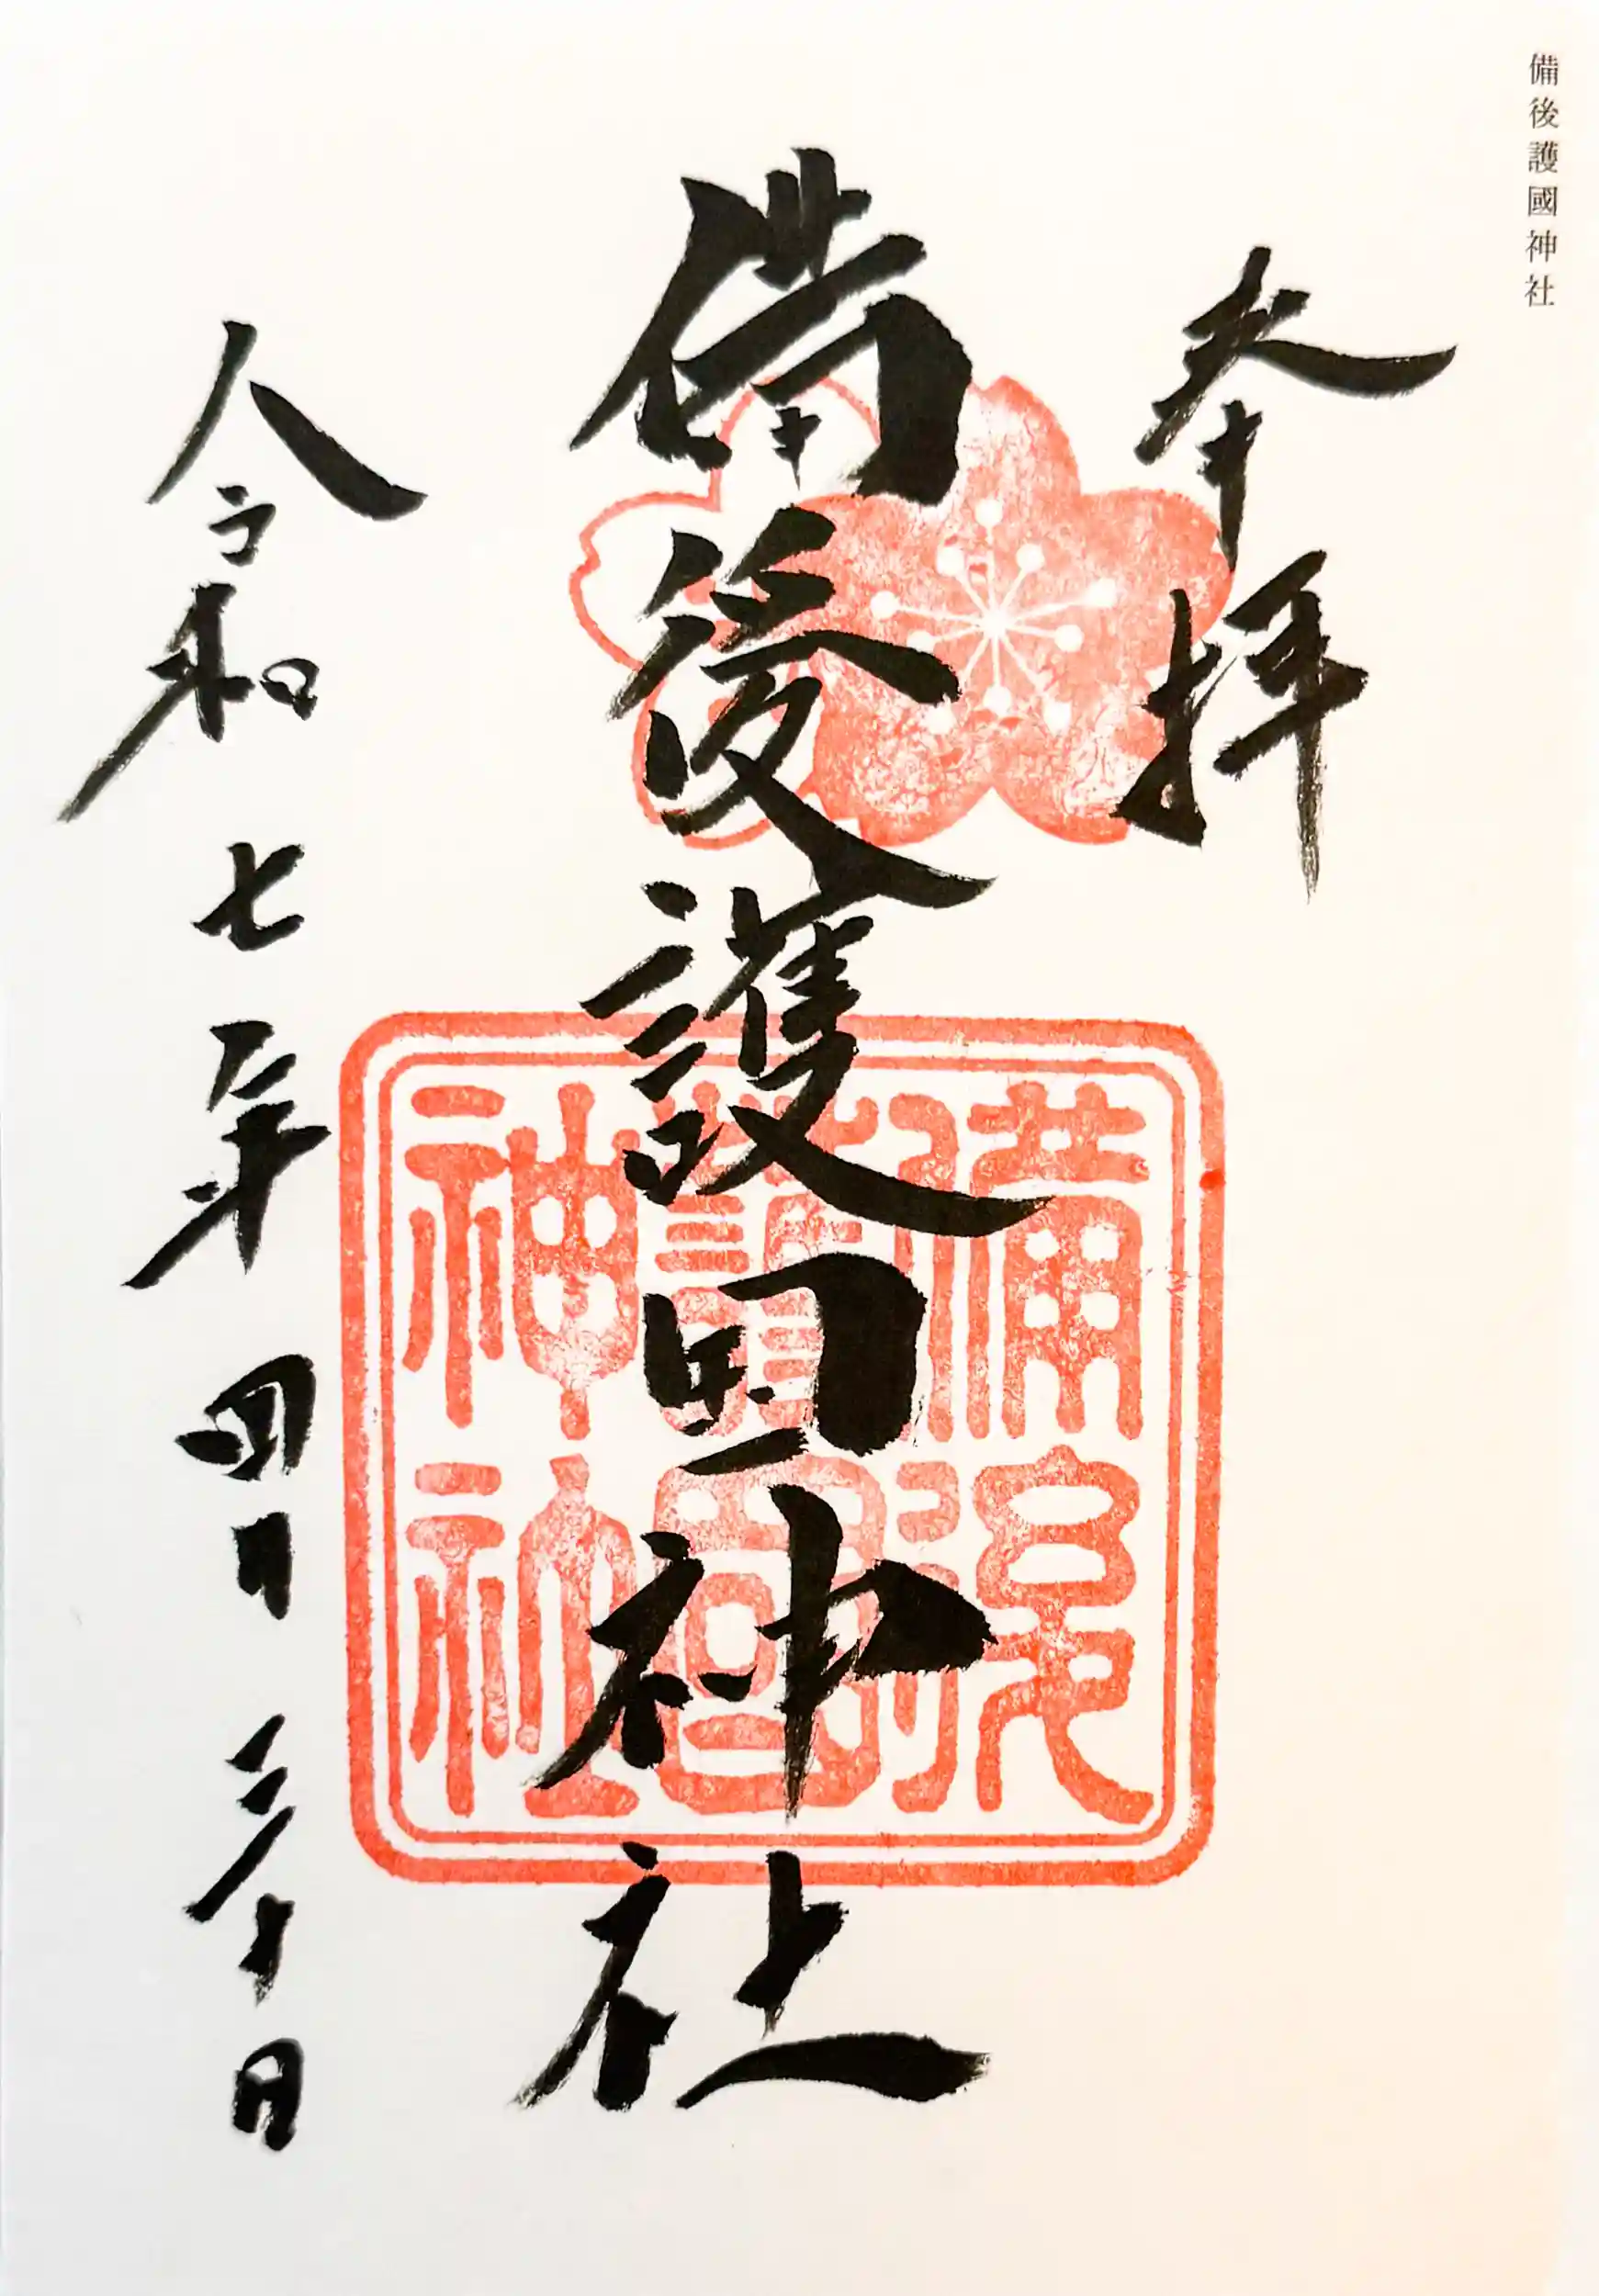 備後護國神社
奉拝
備後護國神社
備後
護國
神社
令和七年四月三十日